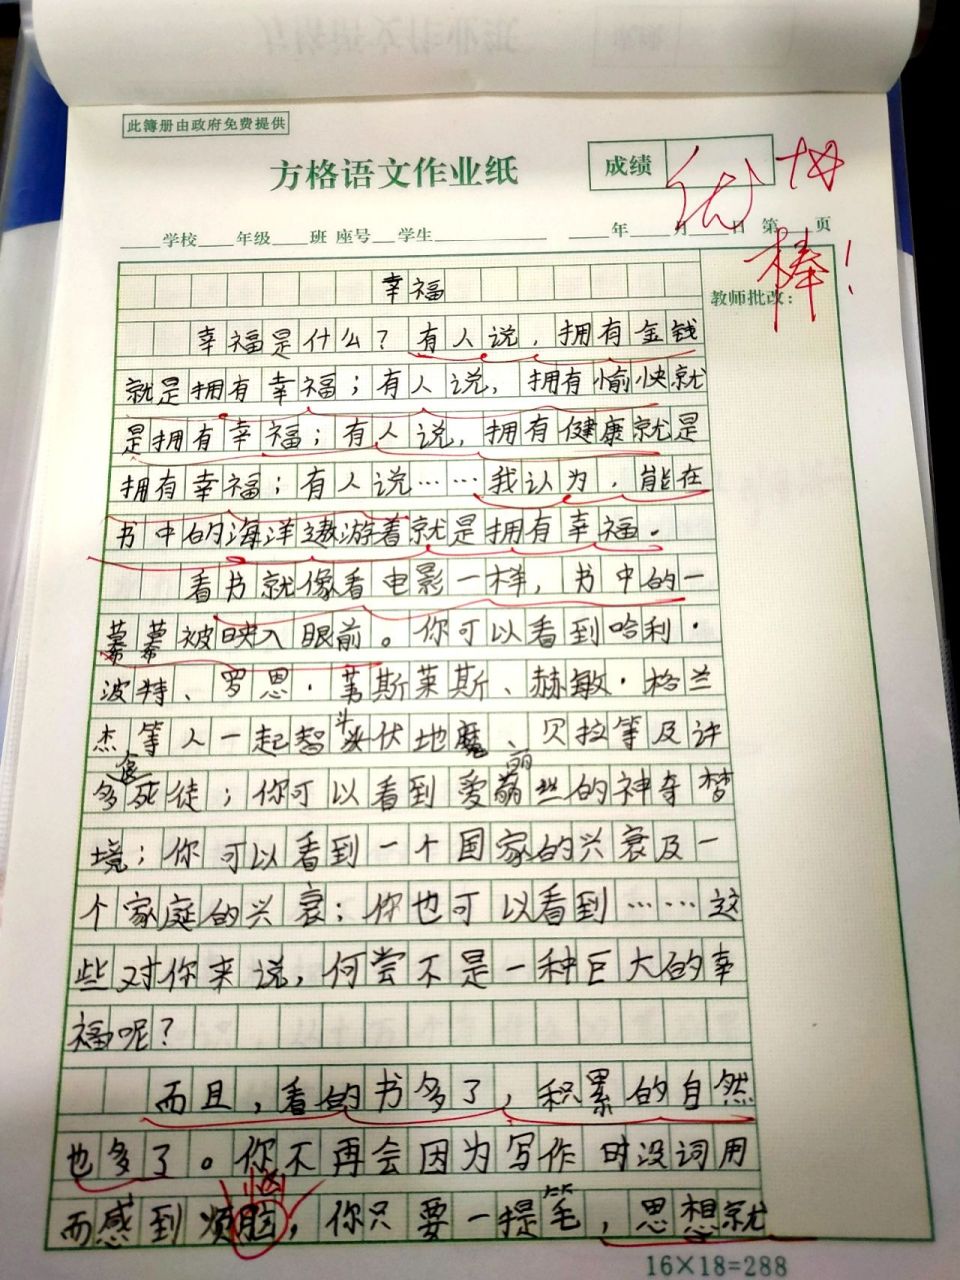 此簿册由政府免费提供
方格语文作业纸
成绩
优
棒！
学校 年级 班 座号 学生 年 月 日 第 页
教师批改：
幸福
幸福是什么？有人说，拥有金钱
就是拥有幸福；有人说，拥有愉快就
是拥有幸福；有人说，拥有健康就是
拥有幸福；有人说……我认为，能在
书中的海洋遨游着就是拥有幸福。
看书就像看电影一样，书中的一
幕幕被映入眼前。你可以看到哈利·
波特、罗恩·韦斯莱斯、赫敏·格兰
杰等人一起智斗伏地魔、贝拉等及许
多食死徒；你可以看到爱丽丝的神奇梦
境；你可以看到一个国家的兴衰及一
个家庭的兴衰；你也可以看到……这
些对你来说，何尝不是一种巨大的幸
福呢？
而且，看的书多了，积累的自然
也多了。你不再会因为写作时没词用
而感到烦脑，你只要一提笔，思想就
恼
16×18=288